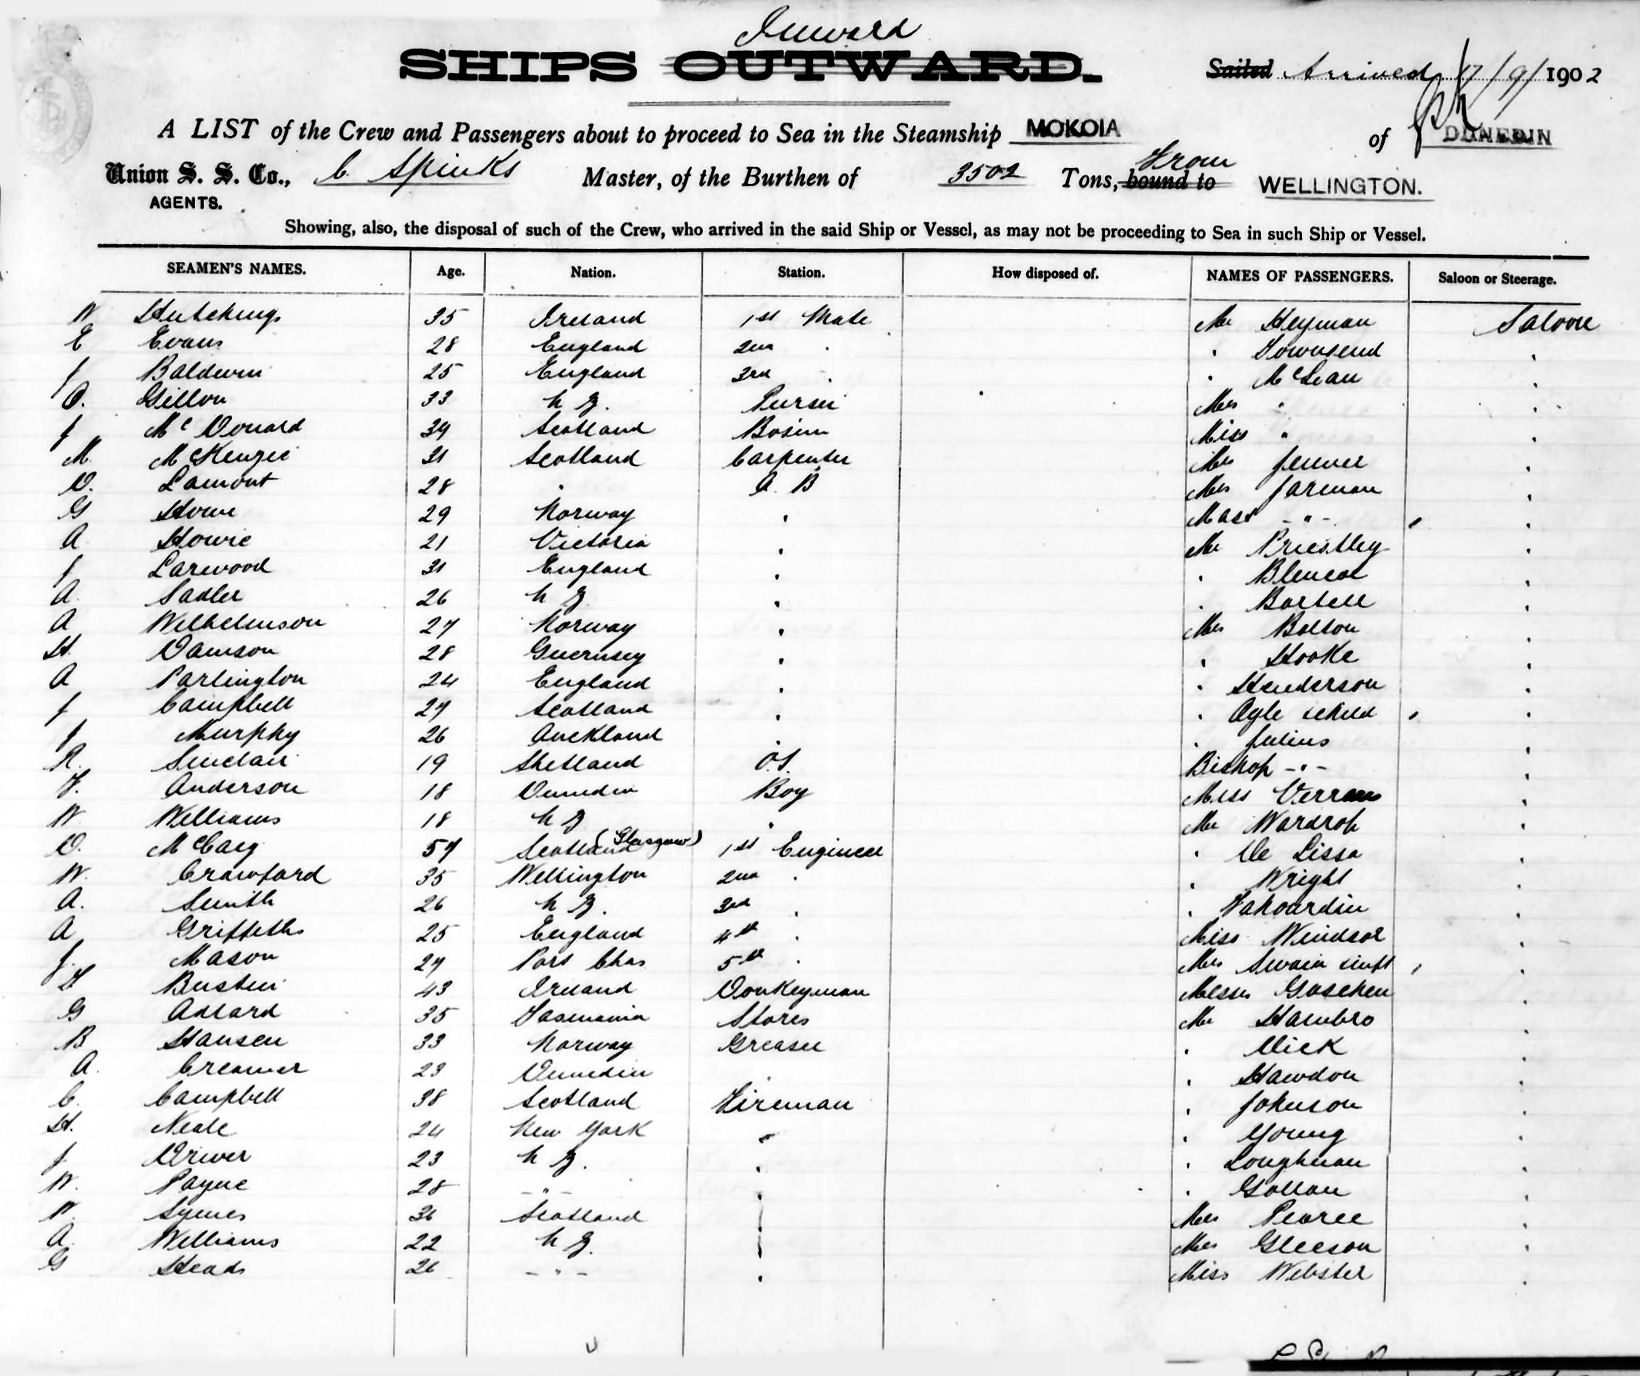 Inward
SHIPS OUTWARD.
Sailed Arrived 17/9/1902
A LIST of the Crew and Passengers about to proceed to Sea in the Steamship MOKOIA of DUNEDIN
Union S. S. Co., C Spinks Master, of the Burthen of 3502 Tons, bound to From WELLINGTON.
AGENTS.
Showing, also, the disposal of such of the Crew, who arrived in the said Ship or Vessel, as may not be proceeding to Sea in such Ship or Vessel.
SEAMEN'S NAMES. Age. Nation. Station. How disposed of. NAMES OF PASSENGERS. Saloon or Steerage.
W Hutchings 35 Ireland 1st Mate Mr Heyman Saloon
E Evans 28 England 2nd " " Townsend "
J Baldwin 25 England 3rd " " McLean "
D. Gillon 33 N Z. Purser Mrs " "
J McDonard 39 Scotland Bosun Miss " "
M. McKenzie 31 Scotland Carpenter Mr Jenner "
D. Lamont 28 " A. B Mrs Jarman "
G Howe 29 Norway " Mast - " - "
A Howie 21 Victoria " Mr Priestley "
J Larwood 31 England " " "
A. Sadler 26 N Z. " " "
A Wilhelmson 27 Norway " Mrs Bolton "
H. Damson 28 Guernsey " " Hooke "
A Parlington 24 England " " Henderson "
J Campbell 27 Scotland " " child "
J Murphy 26 Auckland " " Julius "
R. Sinclair 19 Shetland O.S. Bishop - " - "
F. Anderson 18 Dunedin Boy Miss "
W. Williams 18 N Z " Mr Wardrop "
D. McCaig 57 Scotland (Glasgow) 1st Engineer " De Lissa "
W. Crawford 35 Wellington 2nd " " Wright "
A. Smith 26 N Z. 3rd " " "
A Griffiths 25 England 4th " Miss Windsor "
J. Mason 27 Port Chas 5th " Mrs Swain "
Bustin 43 Ireland Donkeyman Messrs Goschen "
G Adlard 35 Tasmania Stores Mr Hambro "
B Hansen 33 Norway Greaser " "
A. Creamer 23 Dunedin " " Hawdon "
C. Campbell 38 Scotland Fireman " Johnson "
H. Neale 24 New York " " Young "
J. Driver 23 N Z. " " Loughnan "
W. Payne 28 - " - " " Gollan "
W Symes 36 Scotland " Mrs Pearce "
A. Williams 22 N Z. " Mrs Gleeson "
G Heads 26 - " - " Miss Webster "